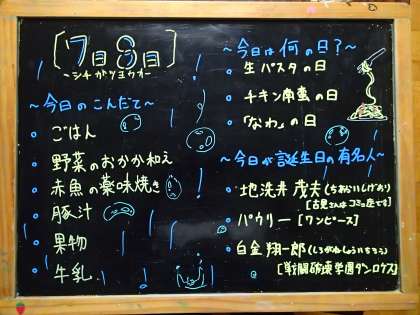 [7月8日]
~シチがツヨウカ~
~今日のこんだて~
・ごはん
・野菜のおかか和え
・赤魚の薬味焼き
・豚汁
・果物
・牛乳
~今日は何の日?~
・生パスタの日
・チキン南蛮の日
・「なわ」の日
~今日が誕生日の有名人~
・地洗井 茂夫(ちあらいしげお)
[古見さんはコミュ症です]
・パウリー[ワンピース]
・白金 翔一郎(しろがねしょういちろう)
[戦闘破壊学園ダンゲロス]